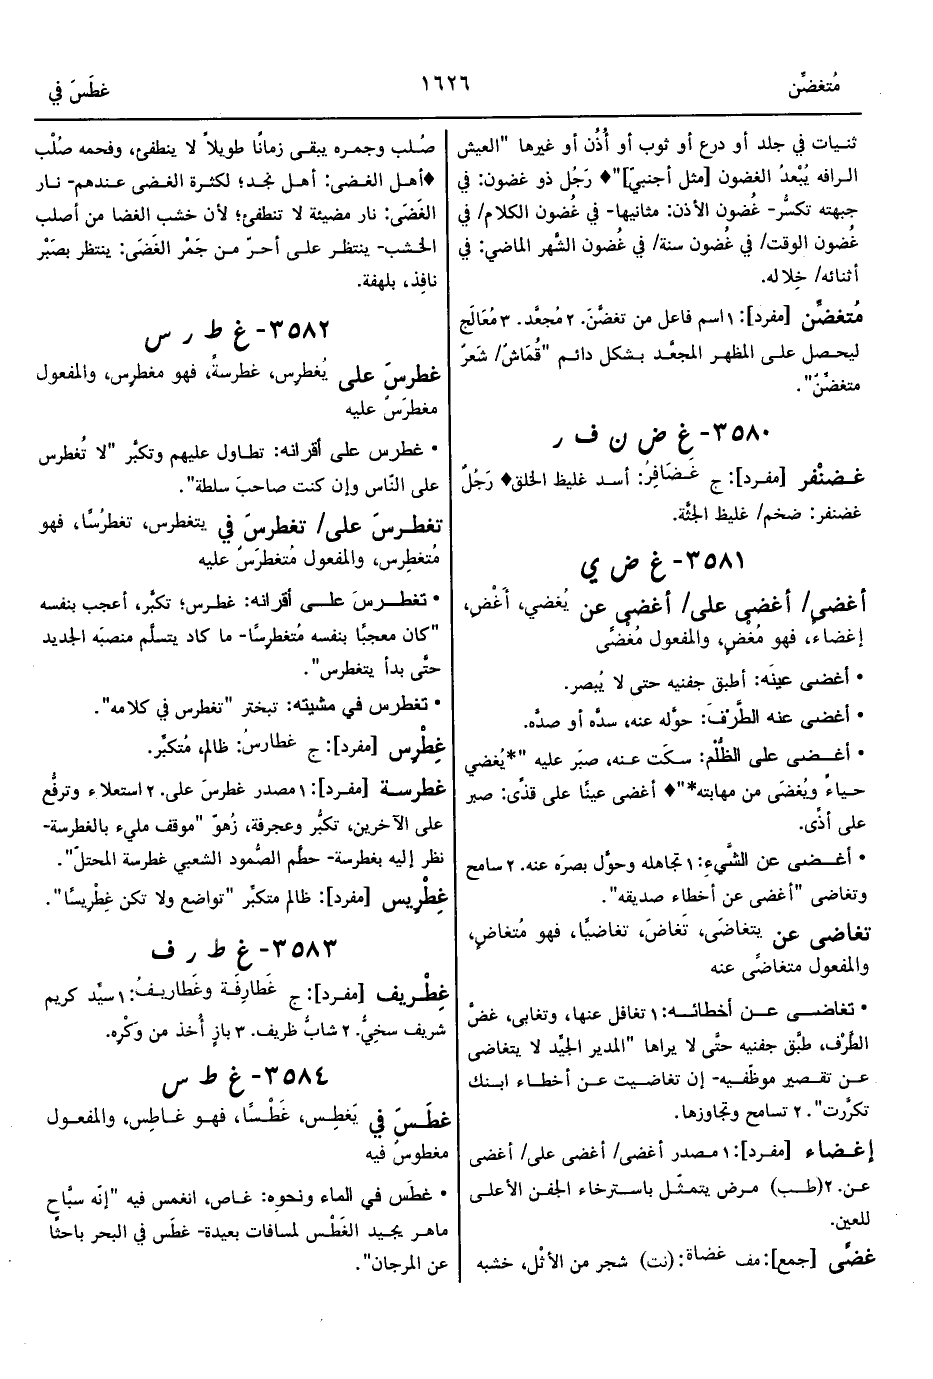 مُتغضِّن
١٦٢٦
غطَسَ في
ثنيات في جلد أو درع أو ثوب أو أُذُن أو غيرها "العيش
الرافه يُبْعدُ الغضون [مثل أجنبيّ]"♦ رَجُل ذو غضون: في
جبهته تكسُّر- غُضون الأذن: مثانيها- في غُضون الكلام/ في
غُضون الوقت/ في غُضون سنة/ في غُضون الشَّهر الماضي: في
أثنائه/ خِلاله.
مُتغضِّن [مفرد]: ١ اسم فاعل من تغضَّنَ. ٢ مُجعَّد. ٣ مُعَالَج
ليحصل على المظهر المجعَّد بشكل دائم "قُماشٌ/ شَعرٌ
متغضِّنٌ".
٣٥٨٠- غ ض ن ف ر
غضنْفر [مفرد]: ج غَضَافِرُ: أسد غليظ الخلق♦ رَجُلٌ
غضنفر: ضخم/ غليظ الجثَّة.
٣٥٨١- غ ض ي
أغضى/ أغضى على/ أغضى عن يُغضي، أَغْضِ،
إغضاء، فهو مُغضٍ، والمفعول مُغضًى
• أغضى عينَه: أطبق جفنيه حتى لا يُبصر.
• أغضى عنه الطَّرْفَ: حوَّله عنه، سدَّه أو صدَّه.
• أغضى على الظُّلْم: سكَت عنه، صبَر عليه "*يُغضي
حياءً ويُغضَى من مهابته*"♦ أغضى عينًا على قذًى: صبر
على أذًى.
• أغضى عن الشَّيءِ: ١ تجاهله وحوَّل بصرَه عنه. ٢ سامح
وتغاضى "أغضى عن أخطاء صديقه".
تغاضى عن يتغاضَى، تَغاضَ، تغاضيًا، فهو مُتغاضٍ،
والمفعول متغاضًى عنه
• تغاضى عن أخطائه: ١ تغافل عنها، وتغابى، غضَّ
الطَّرْف، طبَّق جفنيه حتَّى لا يراها "المدير الجيِّد لا يتغاضى
عن تقصير موظَّفيه- إن تغاضيت عن أخطاء ابنك
تكرَّرت". ٢ تسامح وتجاوزها.
إغضاء [مفرد]: ١ مصدر أغضى/ أغضى على/ أغضى
عن. ٢ (طب) مرض يتمثَّل باسترخاء الجفن الأعلى
للعين.
غضًى [جمع]: مف غضاة: (نت) شجر من الأثْل، خشبه
صُلب وجمره يبقى زمانًا طويلاً لا ينطفئ، وفحمه صُلب
♦أهل الغضى: أهل نجد؛ لكثرة الغضى عندهم- نار
الغَضَى: نار مضيئة لا تنطفئ؛ لأن خشب الغضا من أصلب
الخشب- ينتظر على أحرّ من جَمْر الغَضَى: ينتظر بصَبْر
نافِذ، بلهفة.
٣٥٨٢- غ ط ر س
غطرسَ على يُغطرِس، غطرسةً، فهو مغطرِس، والمفعول
مغطرَسٌ عليه
• غطرس على أقرانه: تطاول عليهم وتكبَّر "لا تُغطرس
على النّاس وإن كنت صاحبَ سلطة".
تغطرسَ على/ تغطرسَ في يتغطرس، تغطرُسًا، فهو
مُتغطرِس، والمفعول مُتغطرَسٌ عليه
• تغطرسَ على أقرانه: غطرس؛ تكبَّر، أعجب بنفسه
"كان معجبًا بنفسه مُتغطرِسًا- ما كاد يتسلَّم منصبَه الجديد
حتَّى بدأ يتغطرس".
• تغطرس في مشيته: تبختر "تغطرس في كلامه".
غِطْرِس [مفرد]: ج غطارسُ: ظالم، مُتكبِّر.
غطرسة [مفرد]: ١ مصدر غطرسَ على. ٢ استعلاء وترفُّع
على الآخرين، تكبُّر وعجرفة، زُهوّ "موقف مليء بالغطرسة-
نظر إليه بغطرسة- حطَّم الصُّمود الشعبي غطرسة المحتلّ".
غِطْرِيس [مفرد]: ظالم متكبِّر "تواضع ولا تكن غِطْريسًا".
٣٥٨٣- غ ط ر ف
غِطْرِيف [مفرد]: ج غَطَارِفَة وغَطَاريفُ: ١ سيِّد كريم
شريف سخيُّ. ٢ شابٌّ ظريف. ٣ بازٍ أُخذ من وَكْرِه.
٣٥٨٤- غ ط س
غطَسَ في يَغطِس، غَطْسًا، فهو غاطِس، والمفعول
مغطوسٌ فيه
• غطَس في الماء ونحوِه: غاص، انغمس فيه "إنّه سبَّاح
ماهر يجيد الغَطْس لمسافات بعيدة- غطَس في البحر باحثًا
عن المرجان".